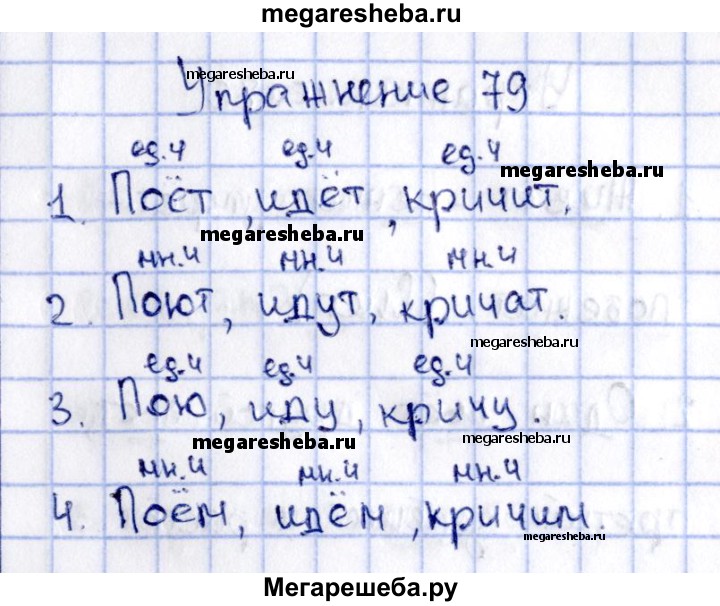 megaresheba.ru
megaresheba.ru
Упражнение 79
ед.ч ед.ч ед.ч
megaresheba.ru
1. Поёт, идёт, кричит.
megaresheba.ru
мн.ч мн.ч мн.ч
2. Поют, идут, кричат.
megaresheba.ru
ед.ч ед.ч ед.ч
3. Пою, иду, кричу.
megaresheba.ru megaresheba.ru
мн.ч мн.ч мн.ч
4. Поём, идём, кричим.
megaresheba.ru
Мегарешеба.ру